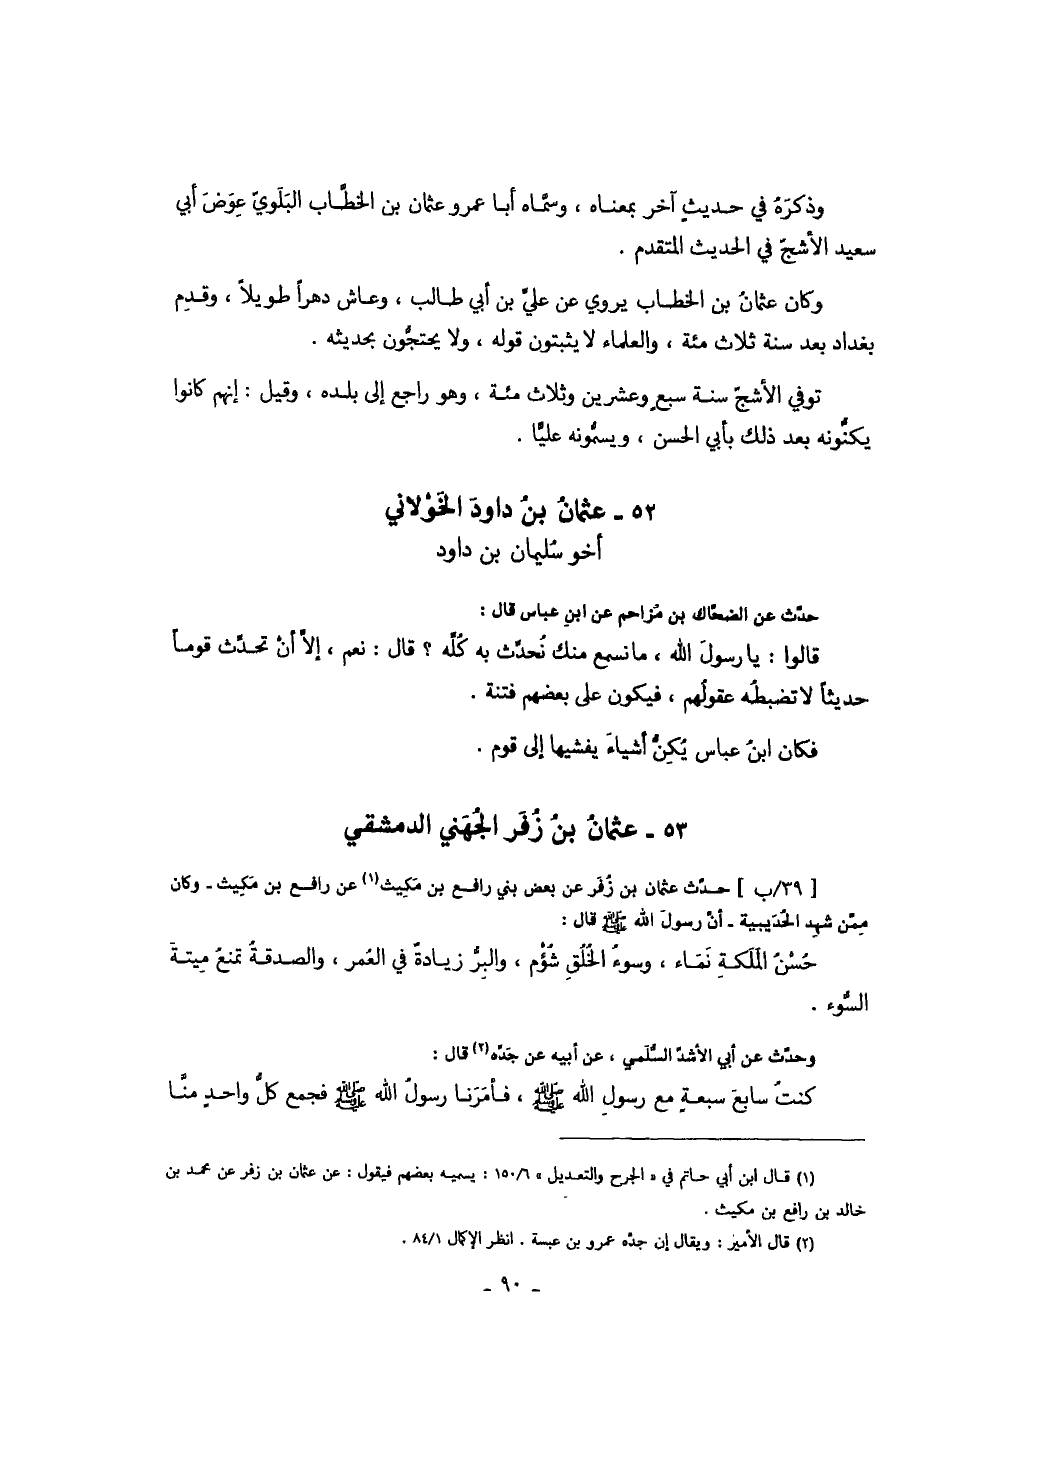 وذكرَهُ في حديثٍ آخر بمعناه ، وسمَّاه أبا عمرو عثمان بن الخطَّاب البَلَويّ عِوَضَ أبي
سعيد الأشجّ في الحديث المتقدم .
وكان عثمانُ بن الخطاب يروي عن عليِّ بن أبي طالب ، وعاش دهراً طويلاً ، وقدِم
بغداد بعد سنة ثلاث مئة ، والعلماء لا يثبتون قوله ، ولا يحتجُّون بحديثه .
توفي الأشجّ سنة سبعٍ وعشرين وثلاث مئة ، وهو راجع إلى بلده ، وقيل : إنهم كانوا
يكنُّونه بعد ذلك بأبي الحسن ، ويسمُّونه عليًّا .
٥٢ ـ عثمانُ بنُ داودَ الخَوْلاني
أخو سُليمان بن داود
حدَّث عن الضحَّاك بن مُزاحم عن ابنِ عباس قال :
قالوا : يا رسولَ الله ، مانسمع منك نُحدِّث به كُلِّه ؟ قال : نعم ، إلاَّ أنْ تحدِّث قوماً
حديثاً لا تضبطُه عقولُهم ، فيكون على بعضهم فتنة .
فكان ابنُ عباس يُكِنُّ أشياءَ يفشيها إلى قوم .
٥٣ ـ عثمانُ بنُ زُفَر الجُهَني الدمشقي
[ ٣٩/ب ] حدَّث عثمان بن زُفَر عن بعض بني رافع بن مَكِيث(١) عن رافع بن مَكِيث ـ وكان
مِمّن شهِد الحُدَيبية ـ أنَّ رسولَ الله ﷺ قال :
حُسْنُ المَلَكةِ نَمَاء ، وسوءُ الخُلُقِ شُؤْم ، والبِرُّ زيادةٌ في العُمر ، والصدقةُ تمنعُ مِيتةَ
السُّوء .
وحدَّث عن أبي الأشدّ السُّلَمي ، عن أبيه عن جَدّه(٢) قال :
كنتُ سابعَ سبعةٍ مع رسولِ الله ﷺ ، فأمَرَنا رسولُ الله ﷺ فجمع كلُّ واحدٍ منَّا
(١) قال ابن أبي حاتم في « الجرح والتعديل » ١٥٠/٦ : يسميه بعضهم فيقول : عن عثمان بن زفر عن محمد بن
خالد بن رافع بن مكيث .
(٢) قال الأمير : ويقال إن جدّه عمرو بن عبسة . انظر الإكمال ٨٤/١ .
ـ ٩٠ ـ